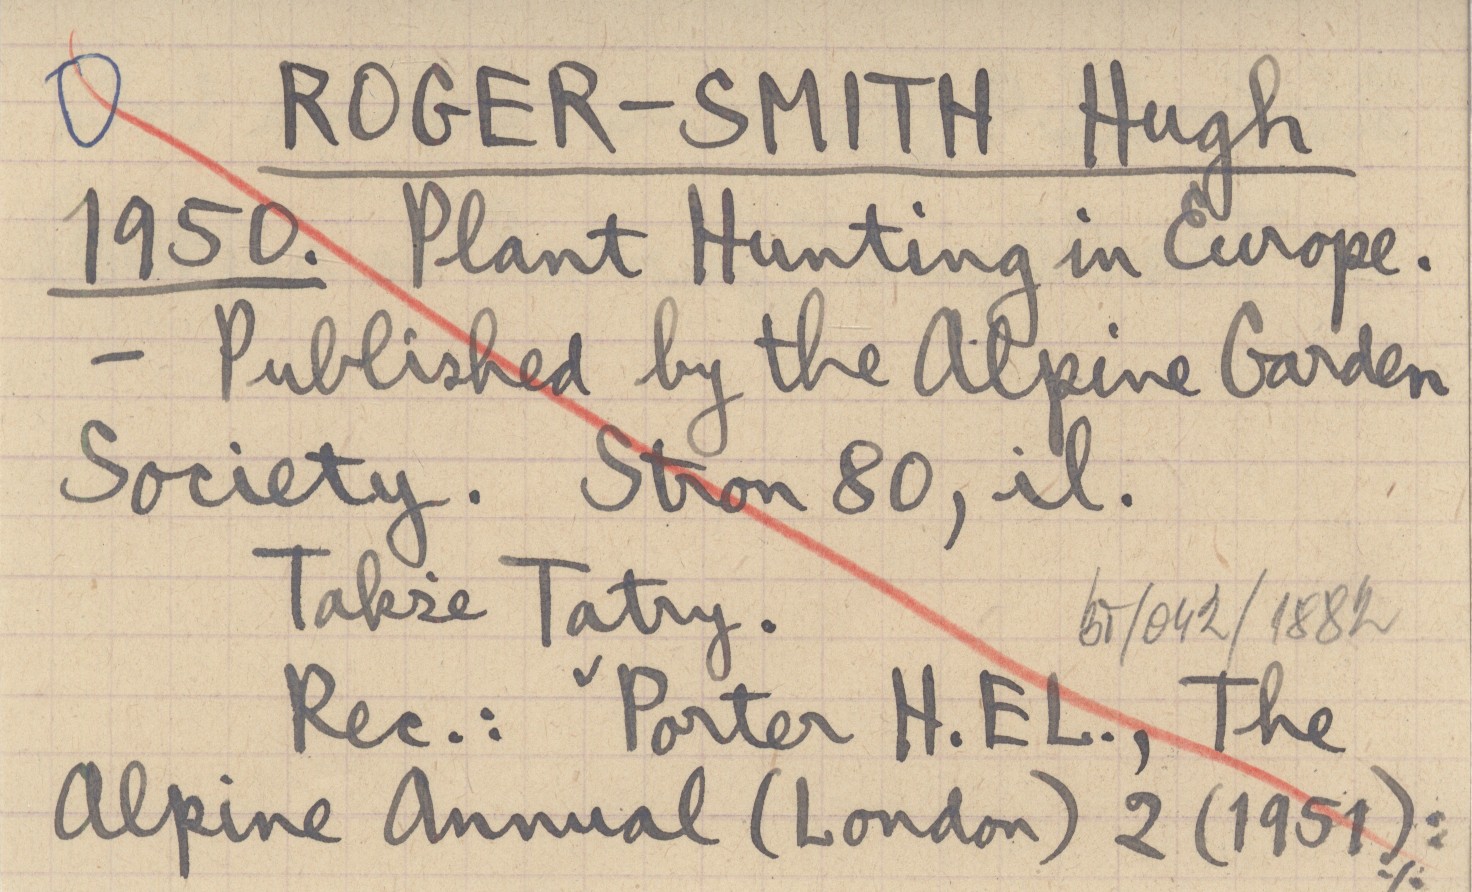 ROGER-SMITH Hugh
1950. Plant Hunting in Europe.
- Published by the Alpine Garden
Society. Stron 80, il.
Także Tatry.
/042/1882
Rec.: ˇPorter H.EL., The
Alpine Annual (London) 2 (1951):
-/-